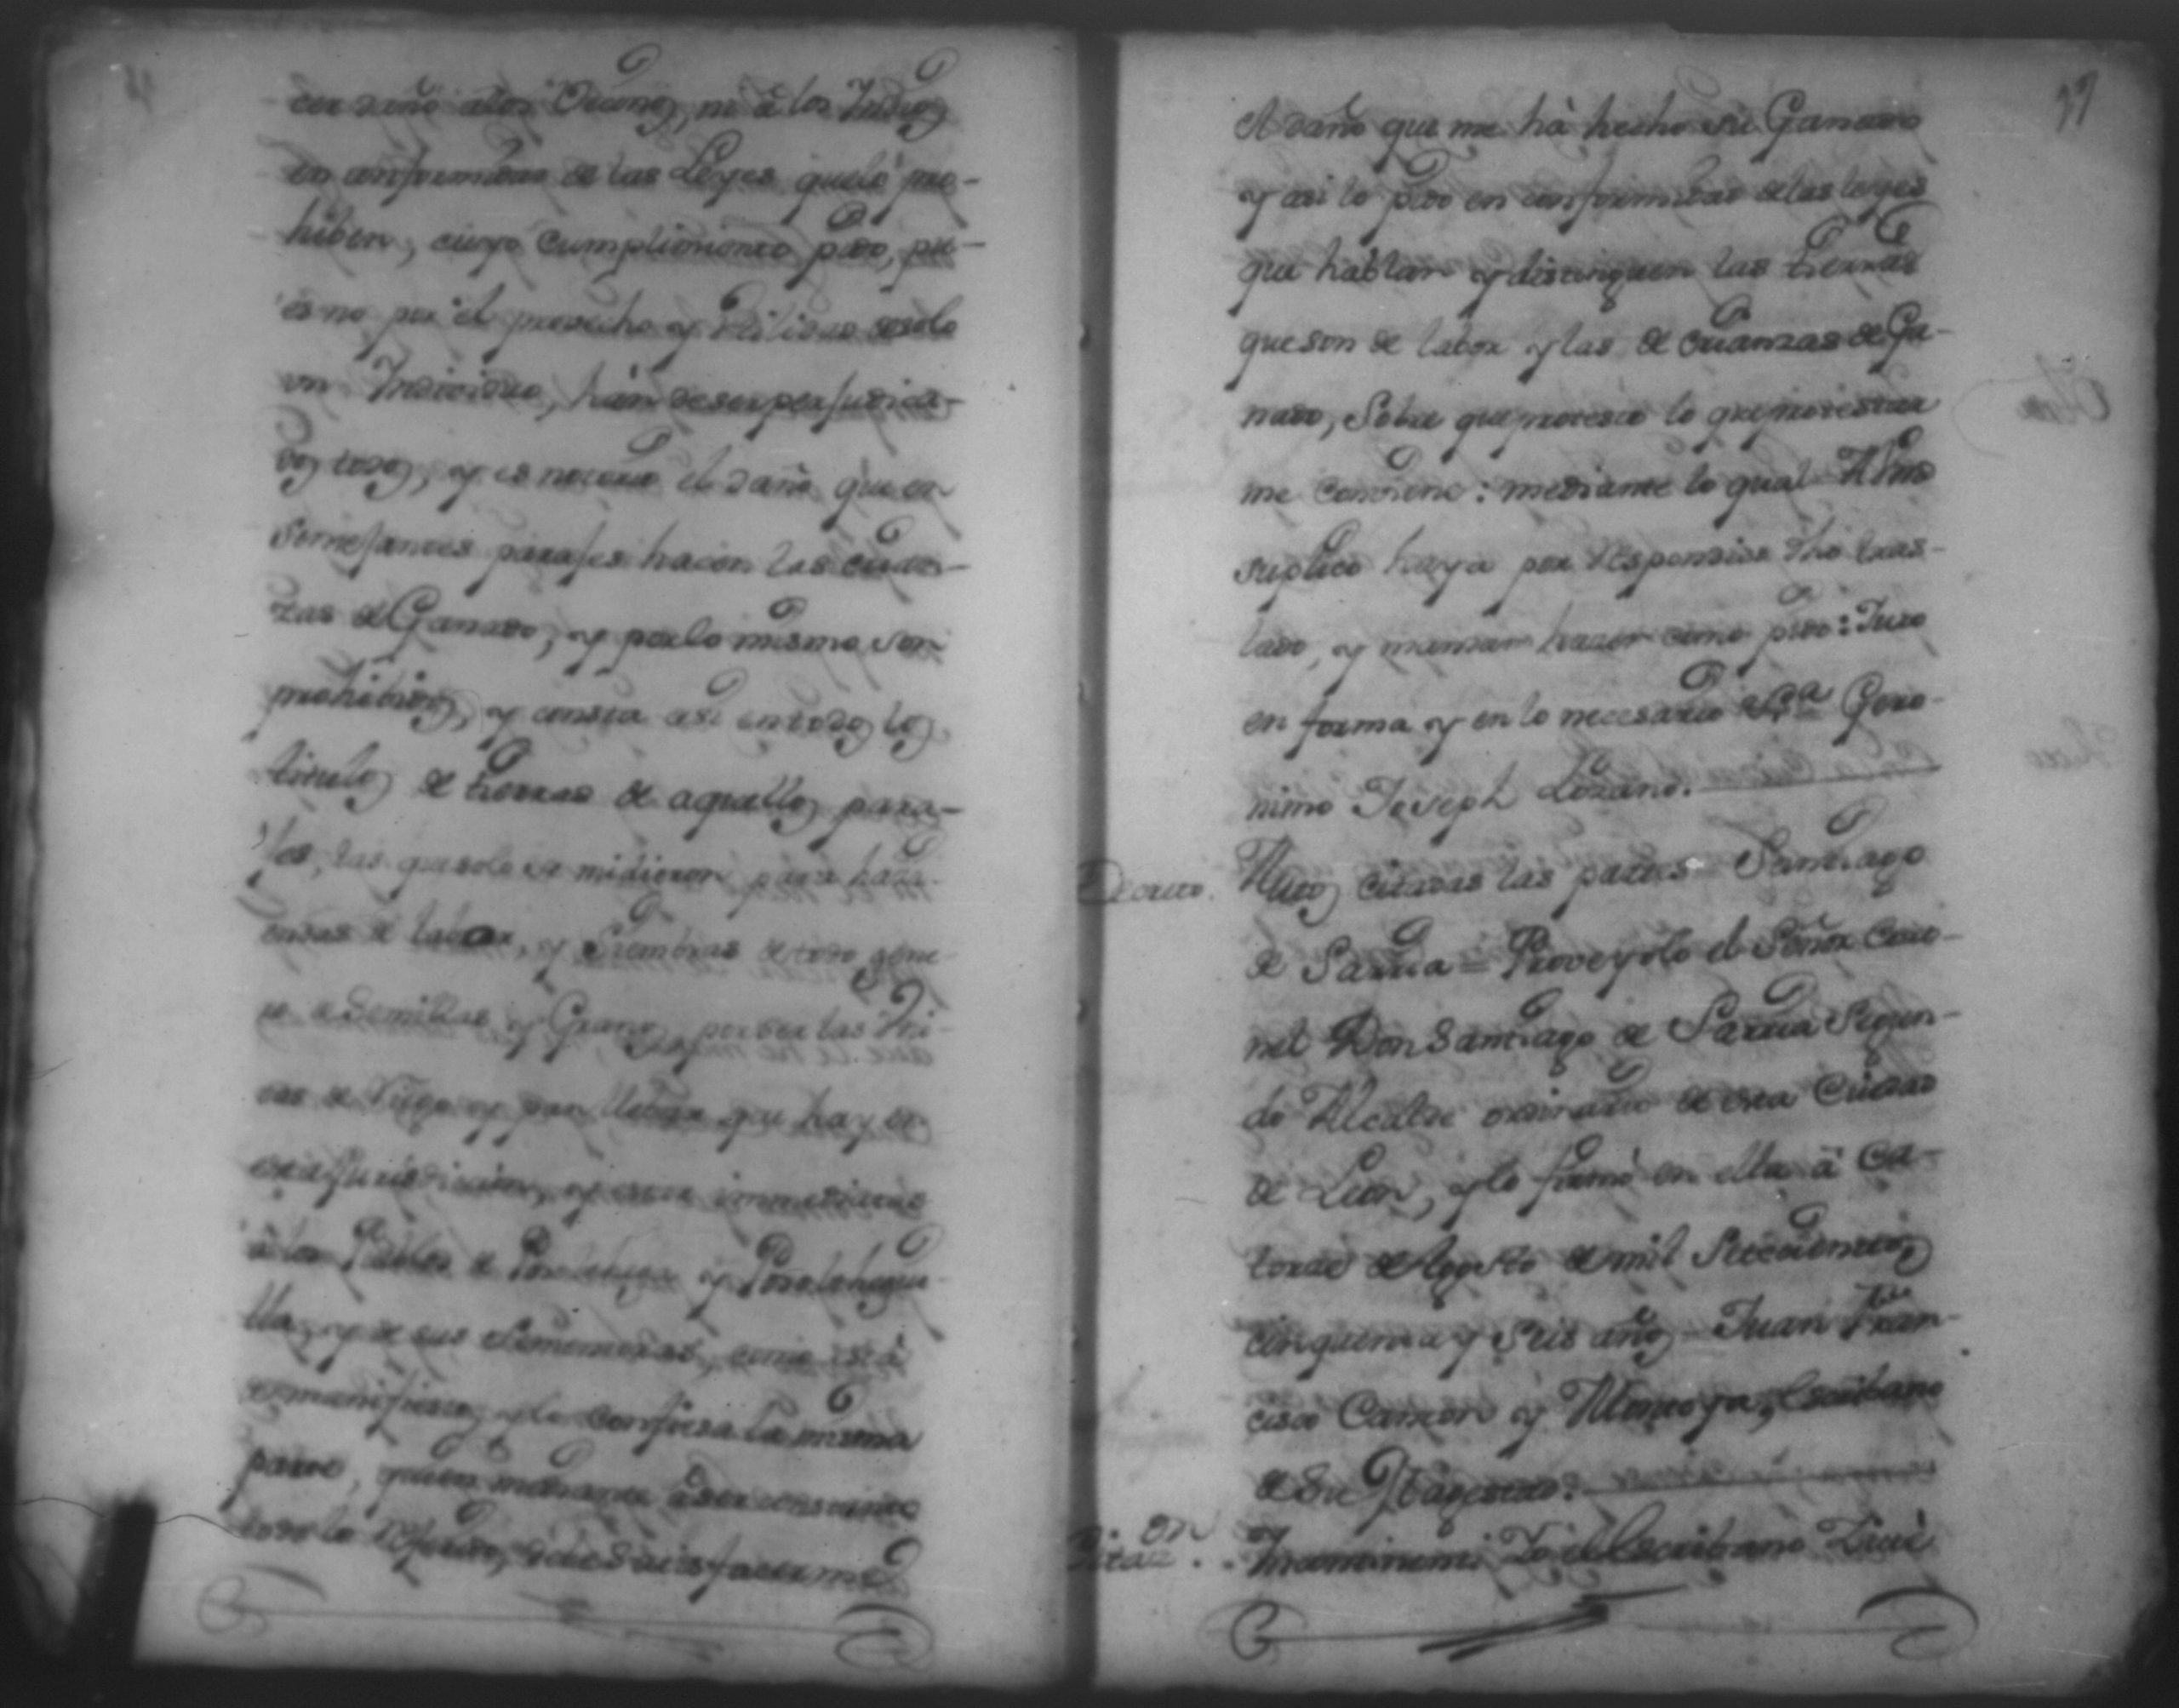 cer daño a los Vecinos, ni â los Indios
en conformidad de las Leyes que lo pro-
hiben, cuyo cumplimiento pido, pu-
es no por el provecho y Utilidad de solo
un Individuo, hàn de ser perjudica-
dos todos, y es notorio el daño que en
semejantes parajes hacen las crian-
zas de Ganado, y por lo mismo son
prohibidos, y consta asi en todos los
titulos de tierras de aquellos para-
jes, las que solo se midieron para haci-
endas de labor, y Siembras de todo gene-
ro de Semillas, y Granos, por ser las
de Trigo y pan llevar que hay en
esta Jurisdicion, y estar immediatas
â los Pueblos de y
lla, y de sus Sementeras, como està
de manifiesto, y lo confiesa la misma
parte, quien mediante â ser constante
todo lo referido, debe satisfacerme
El daño que me hà hecho su Ganado
y asi lo pido en conformidad de las leyes
que hablan y distinguen las tierras
que son de labor y las de crianzas de Ga-
nado, Sobre que protesto lo que protestar
me combiene: mediante lo qual A Vmd
suplico haya por respondido dho tras-
lado, y mandar hacer como pido: Juro
en forma y en lo necesario &ca Gero-
nimo Joseph Lozano.
Decreto. Autos citadas las partes Santiago
de Sarria = Proveyolo el Señor Coro-
nel Don Santiago de Sarria Segun-
do Alcalde ordinario de esta Ciudad
de Leon, y lo firmò en ella â Ca-
torze de Agosto de mil Setecientos
cinquenta y Seis años Juan Fran-
cisco Camon y Montoya, Escribano
de Su Magestad.
Citaz.on Incontinenti Yo el Escribano Citè